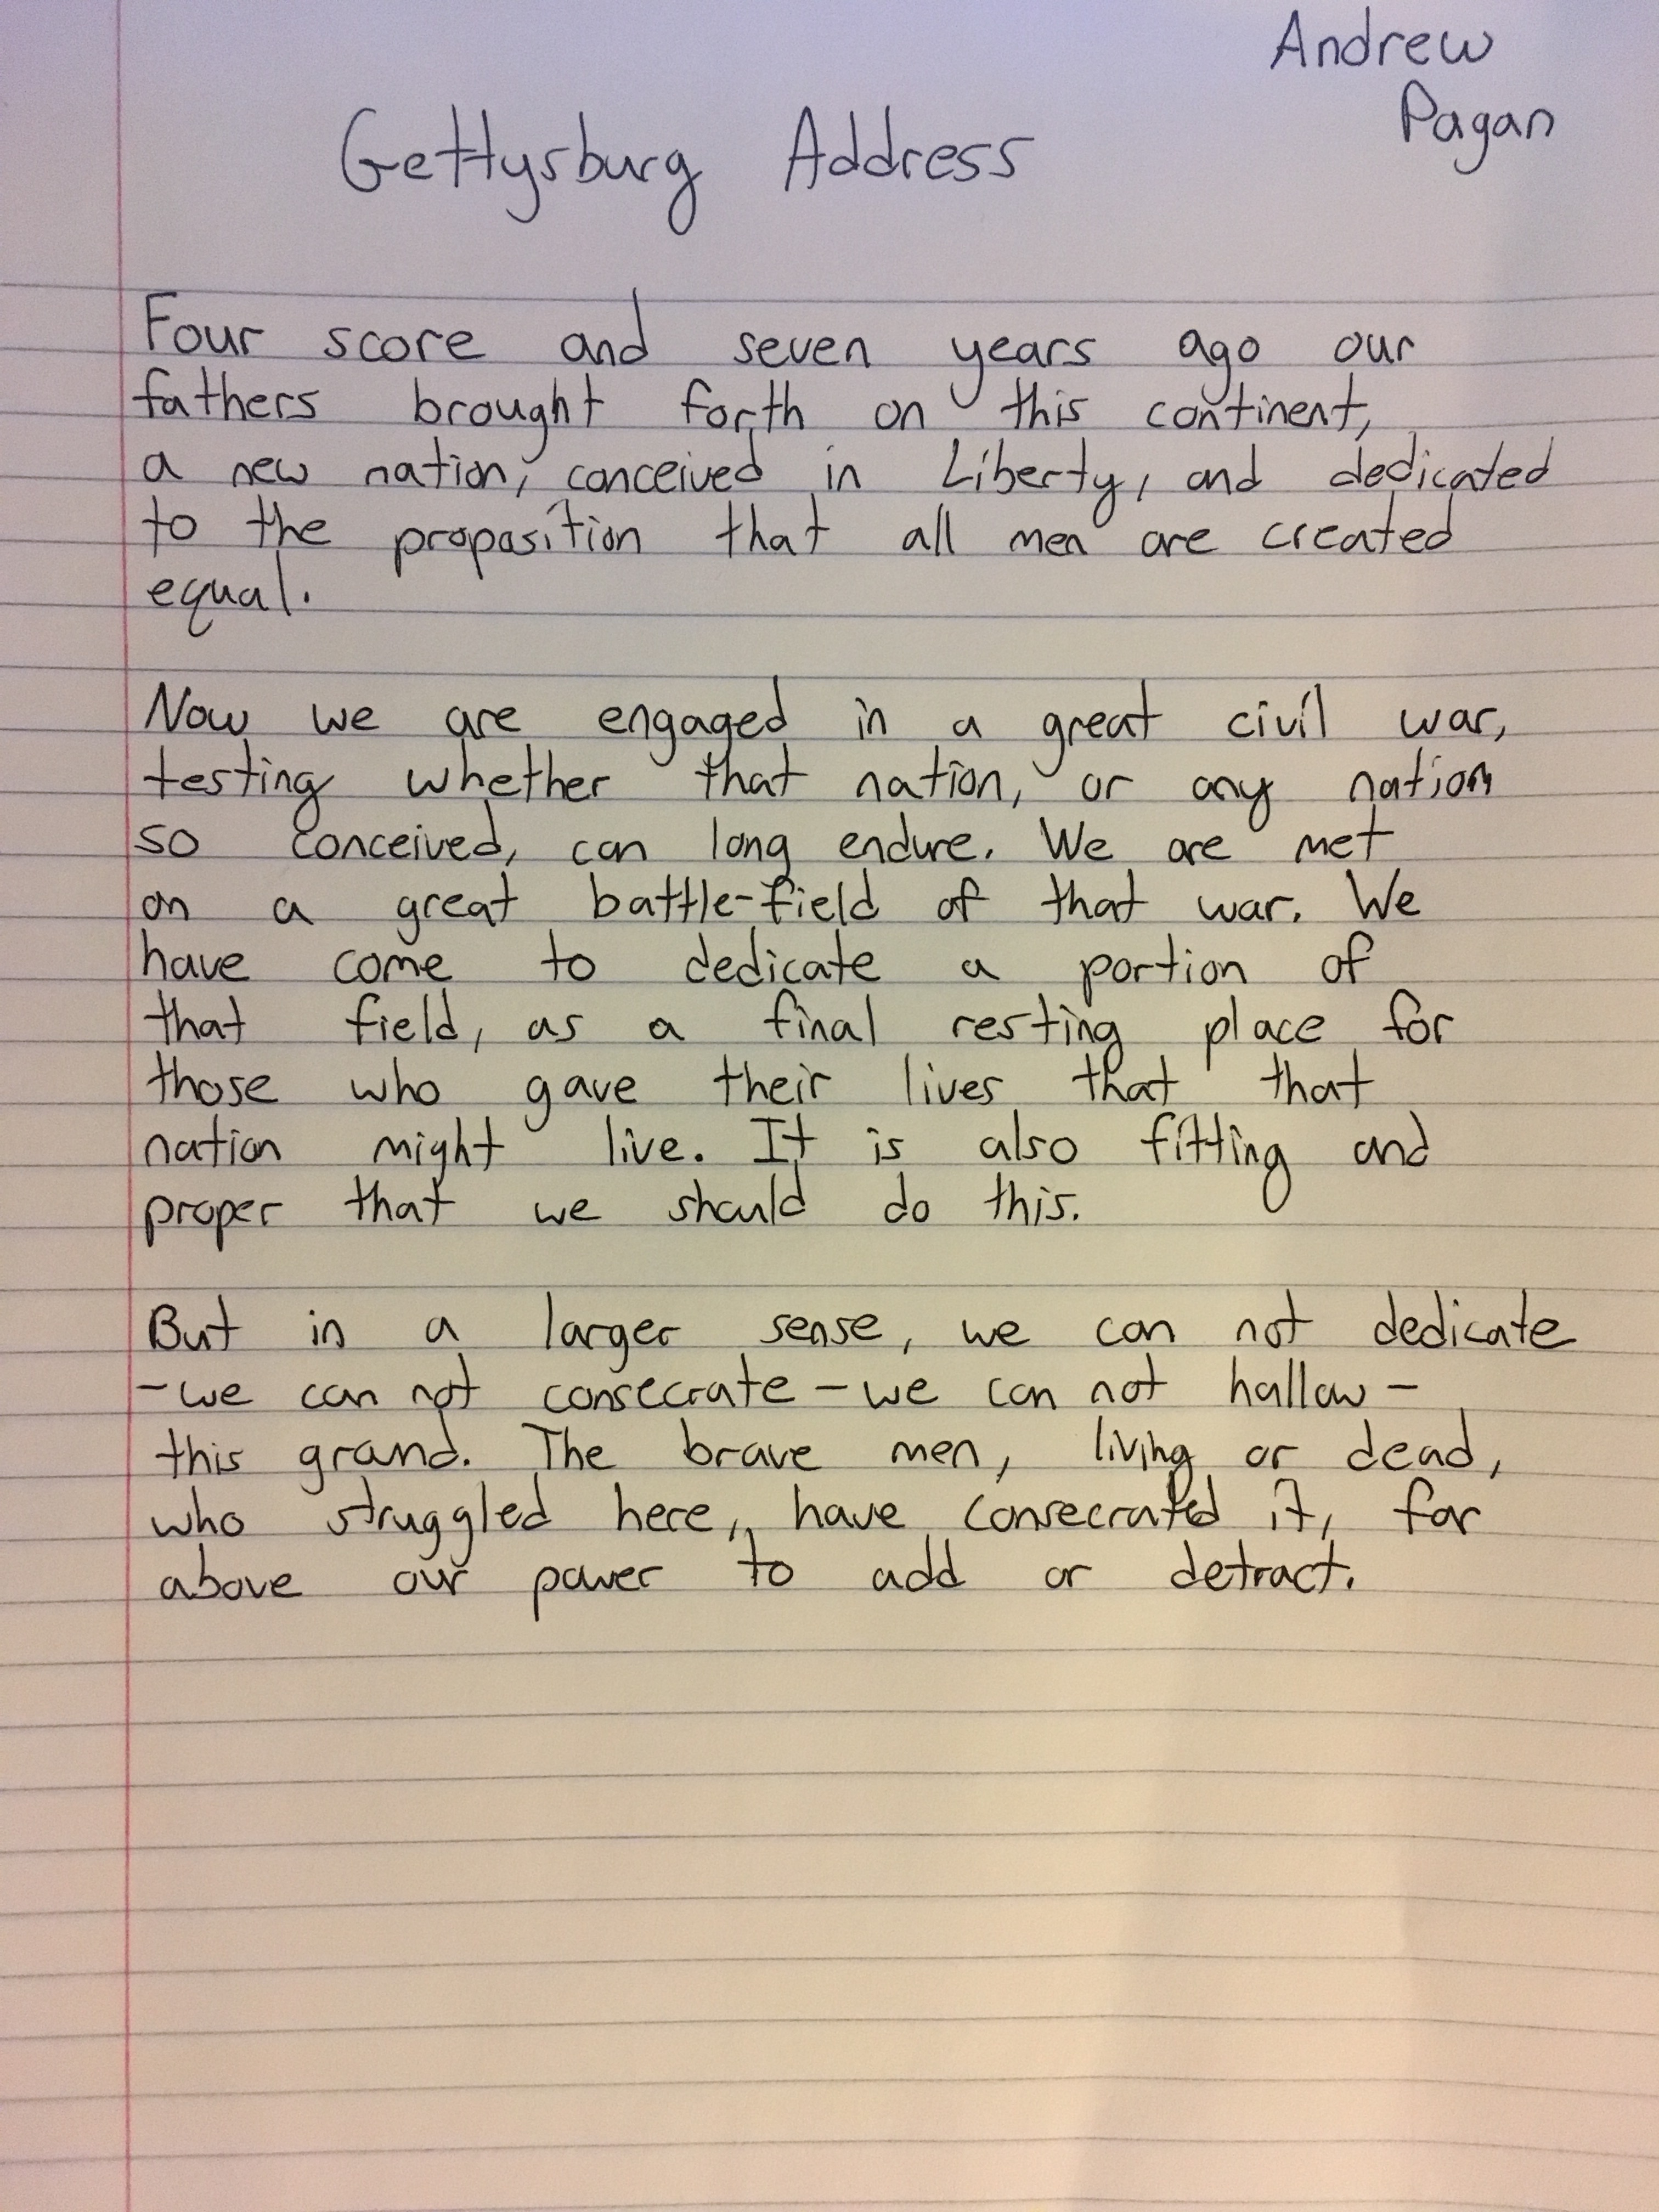 Andrew
Pagan
Gettysburg Address
Four score and seven years ago our
fathers brought forth on this continent,
a new nation, conceived in Liberty, and dedicated
to the proposition that all men are created
equal.
Now we are engaged in a great civil war,
testing whether that nation, or any nation
so conceived, can long endure. We are met
on a great battle-field of that war. We
have come to dedicate a portion of
that field, as a final resting place for
those who gave their lives that that
nation might live. It is also fitting and
proper that we should do this.
But in a larger sense, we can not dedicate
-we can not consecrate-we can not hallow-
this grand. The brave men, living or dead,
who struggled here,, have consecrated it, far
above our power to add or detract.